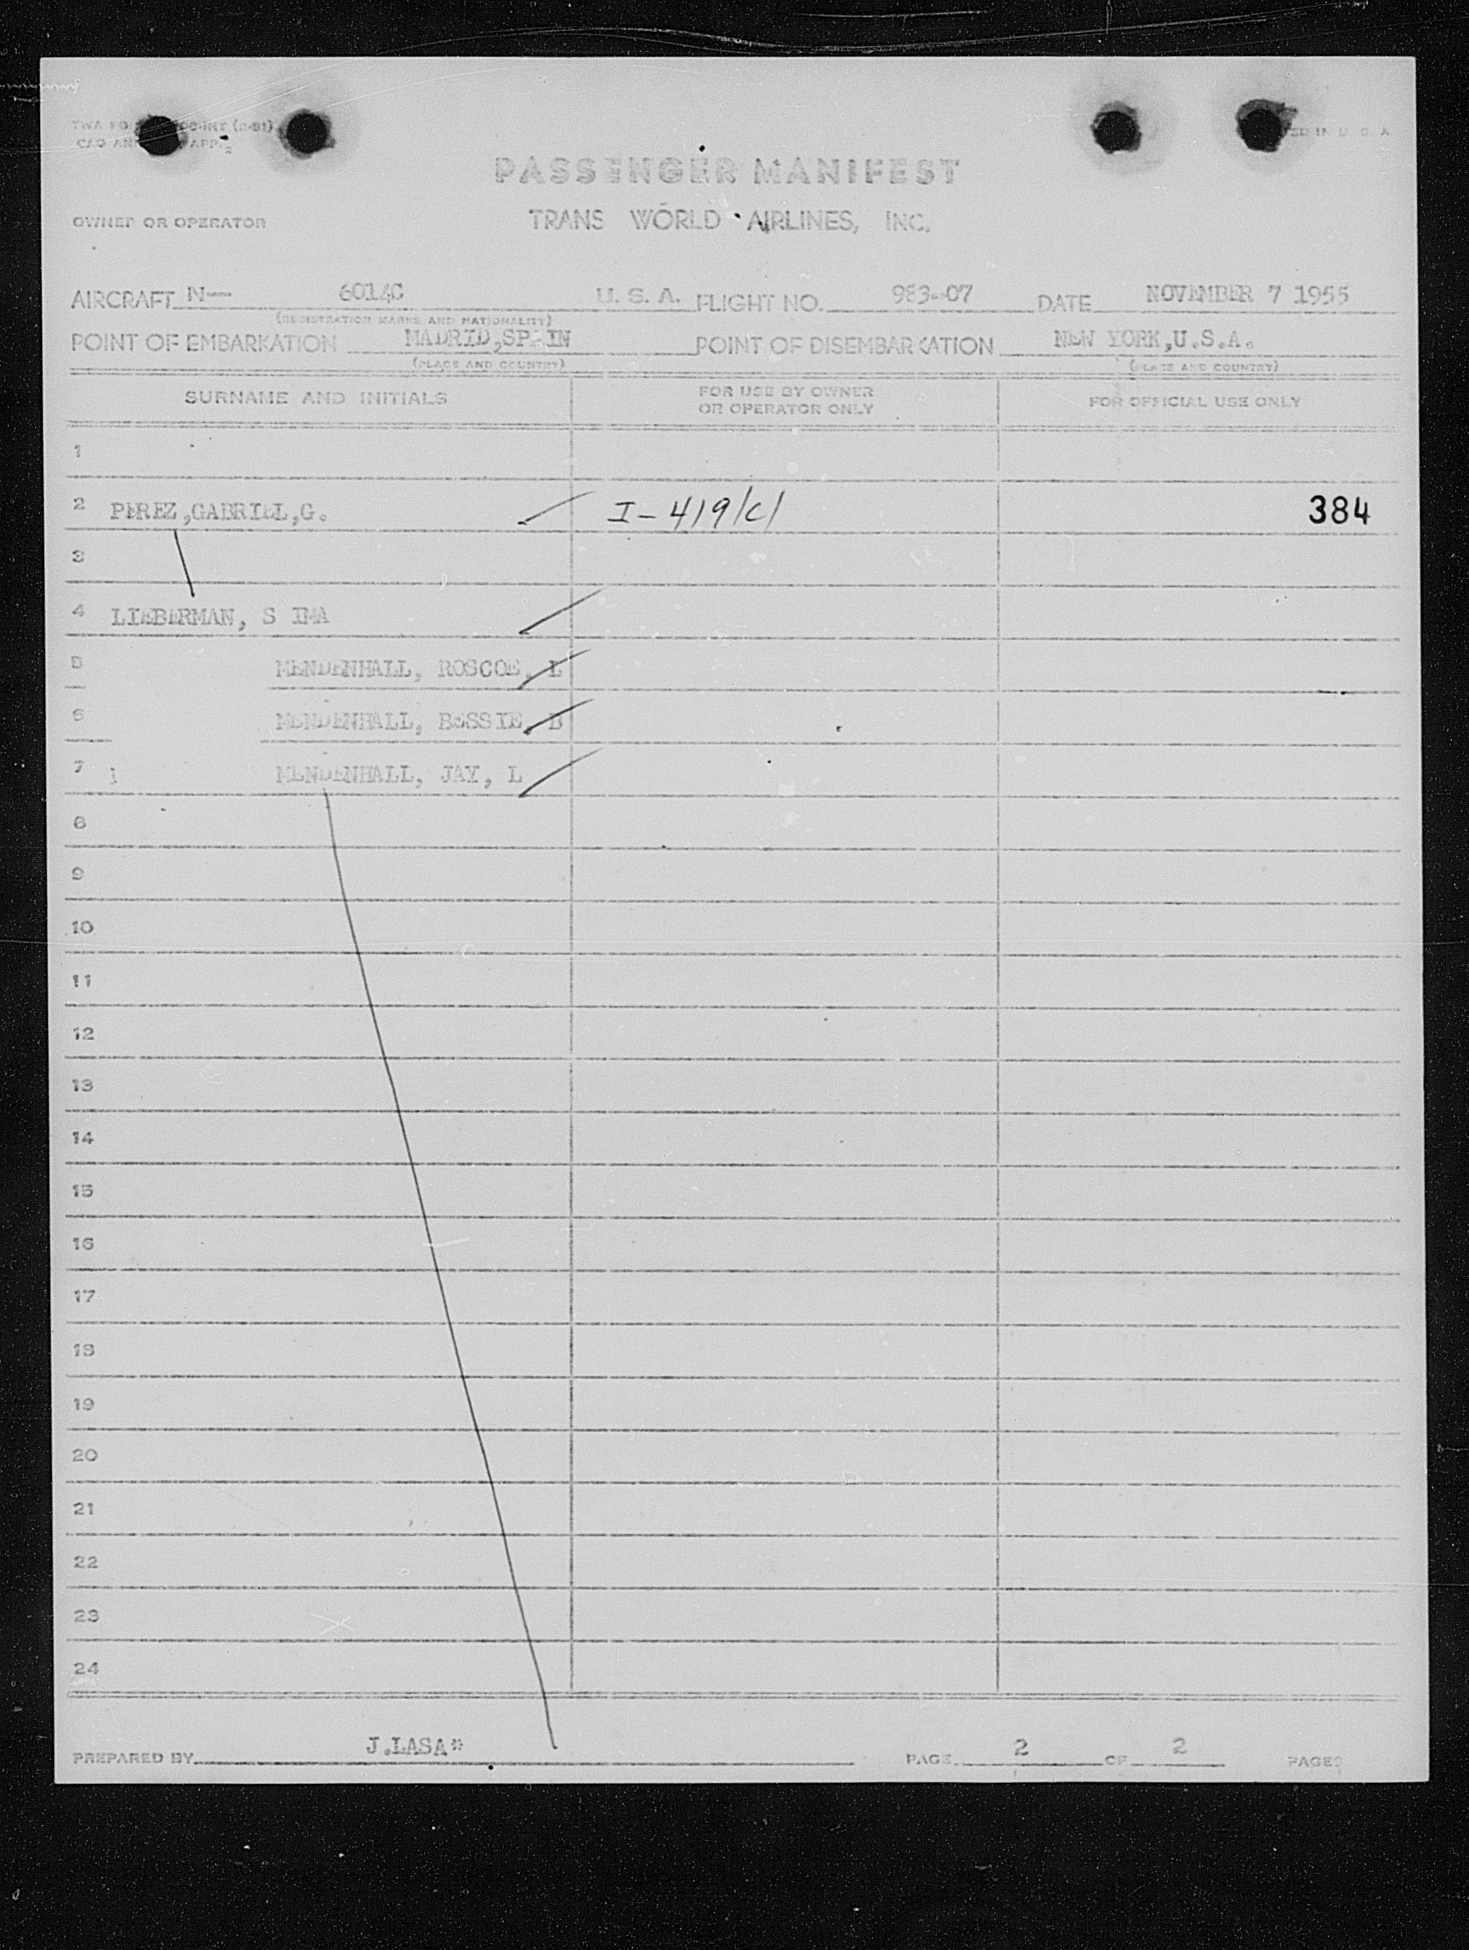 TWA FO
CAO AN APP.
IN U. S. A.
PASSENGER MANIFEST
OWNER OR OPERATOR TRANS WORLD AIRLINES, INC.
AIRCRAFT N-- 6014C U. S. A. FLIGHT NO. 983-07 DATE NOVEMBER 7 1955
(REGISTRATION MARKS AND NATIONALITY)
POINT OF EMBARKATION MADRID,SPAIN POINT OF DISEMBARKATION NEW YORK,U.S.A.
(PLACE AND COUNTRY) (PLACE AND COUNTRY)
SURNAME AND INITIALS FOR USE BY OWNER OR OPERATOR ONLY FOR OFFICIAL USE ONLY
1
2 PEREZ,GABRIEL,G. I-419/c/ 384
3
4 LIEBERMAN, S IMA
5 MENDENHALL, ROSCOE, L
6 MENDENHALL, BESSIE, B
7 MENDENHALL, JAY, L
8
9
10
11
12
13
14
15
16
17
18
19
20
21
22
23
24
PREPARED BY J.LASA* PAGE 2 OF 2 PAGES